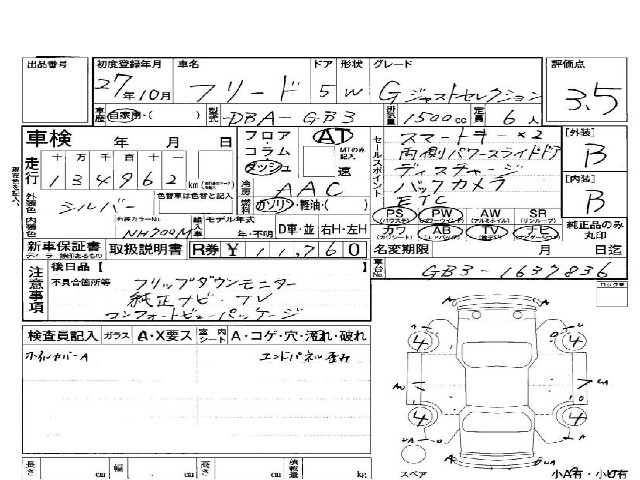 出品番号 初度登録年月 車名 ドア 形状 グレード 評価点
27年10月 フリード 5 W Gジャストセレクション 3.5
車歴 自家用・( ) 型式 DBA-GB3 排気量 1500cc 定員 6人
車検 年 月 日
フロア・コラム・ダッシュ AT MTのみ記入 速
セールスポイント
スマートキー×2
両側パワースライドドア
ディスチャージ
バックカメラ
ETC
[外装] B
[内装] B
走行 十万千百十一
134962 km
冷房 AAC
外装色 シルバー 色替車は色替と記入
燃料 ガソリン・軽油・( )
PS PW AW SR
(パワステ) (パワーウィンド) (アルミホイル) (サンルーフ)
カワ AB TV ナビ
(カワシート) (エアバッグ)
純正品のみ丸印
内装色 外装カラーNo. NH700M
輸入車 モデル年式 年・不明 D車・並 右H・左H
新車保証書 取扱説明書 R券 ¥11,760
名変期限 月 日迄
車台No. GB3-1637836
注意事項
後日品【 】
不具合箇所等
フリップダウンモニター
純正ナビ・TV
コンフォートビューパッケージ
検査員記入 ガラス A・X要ス 室内シート A・コゲ・穴・濡れ・破れ
ホイルカバーA エンドパネル歪み
4 4
4 4
長さ cm 幅 cm 高さ cm 積載量 kg
スペア 小A有・小U有